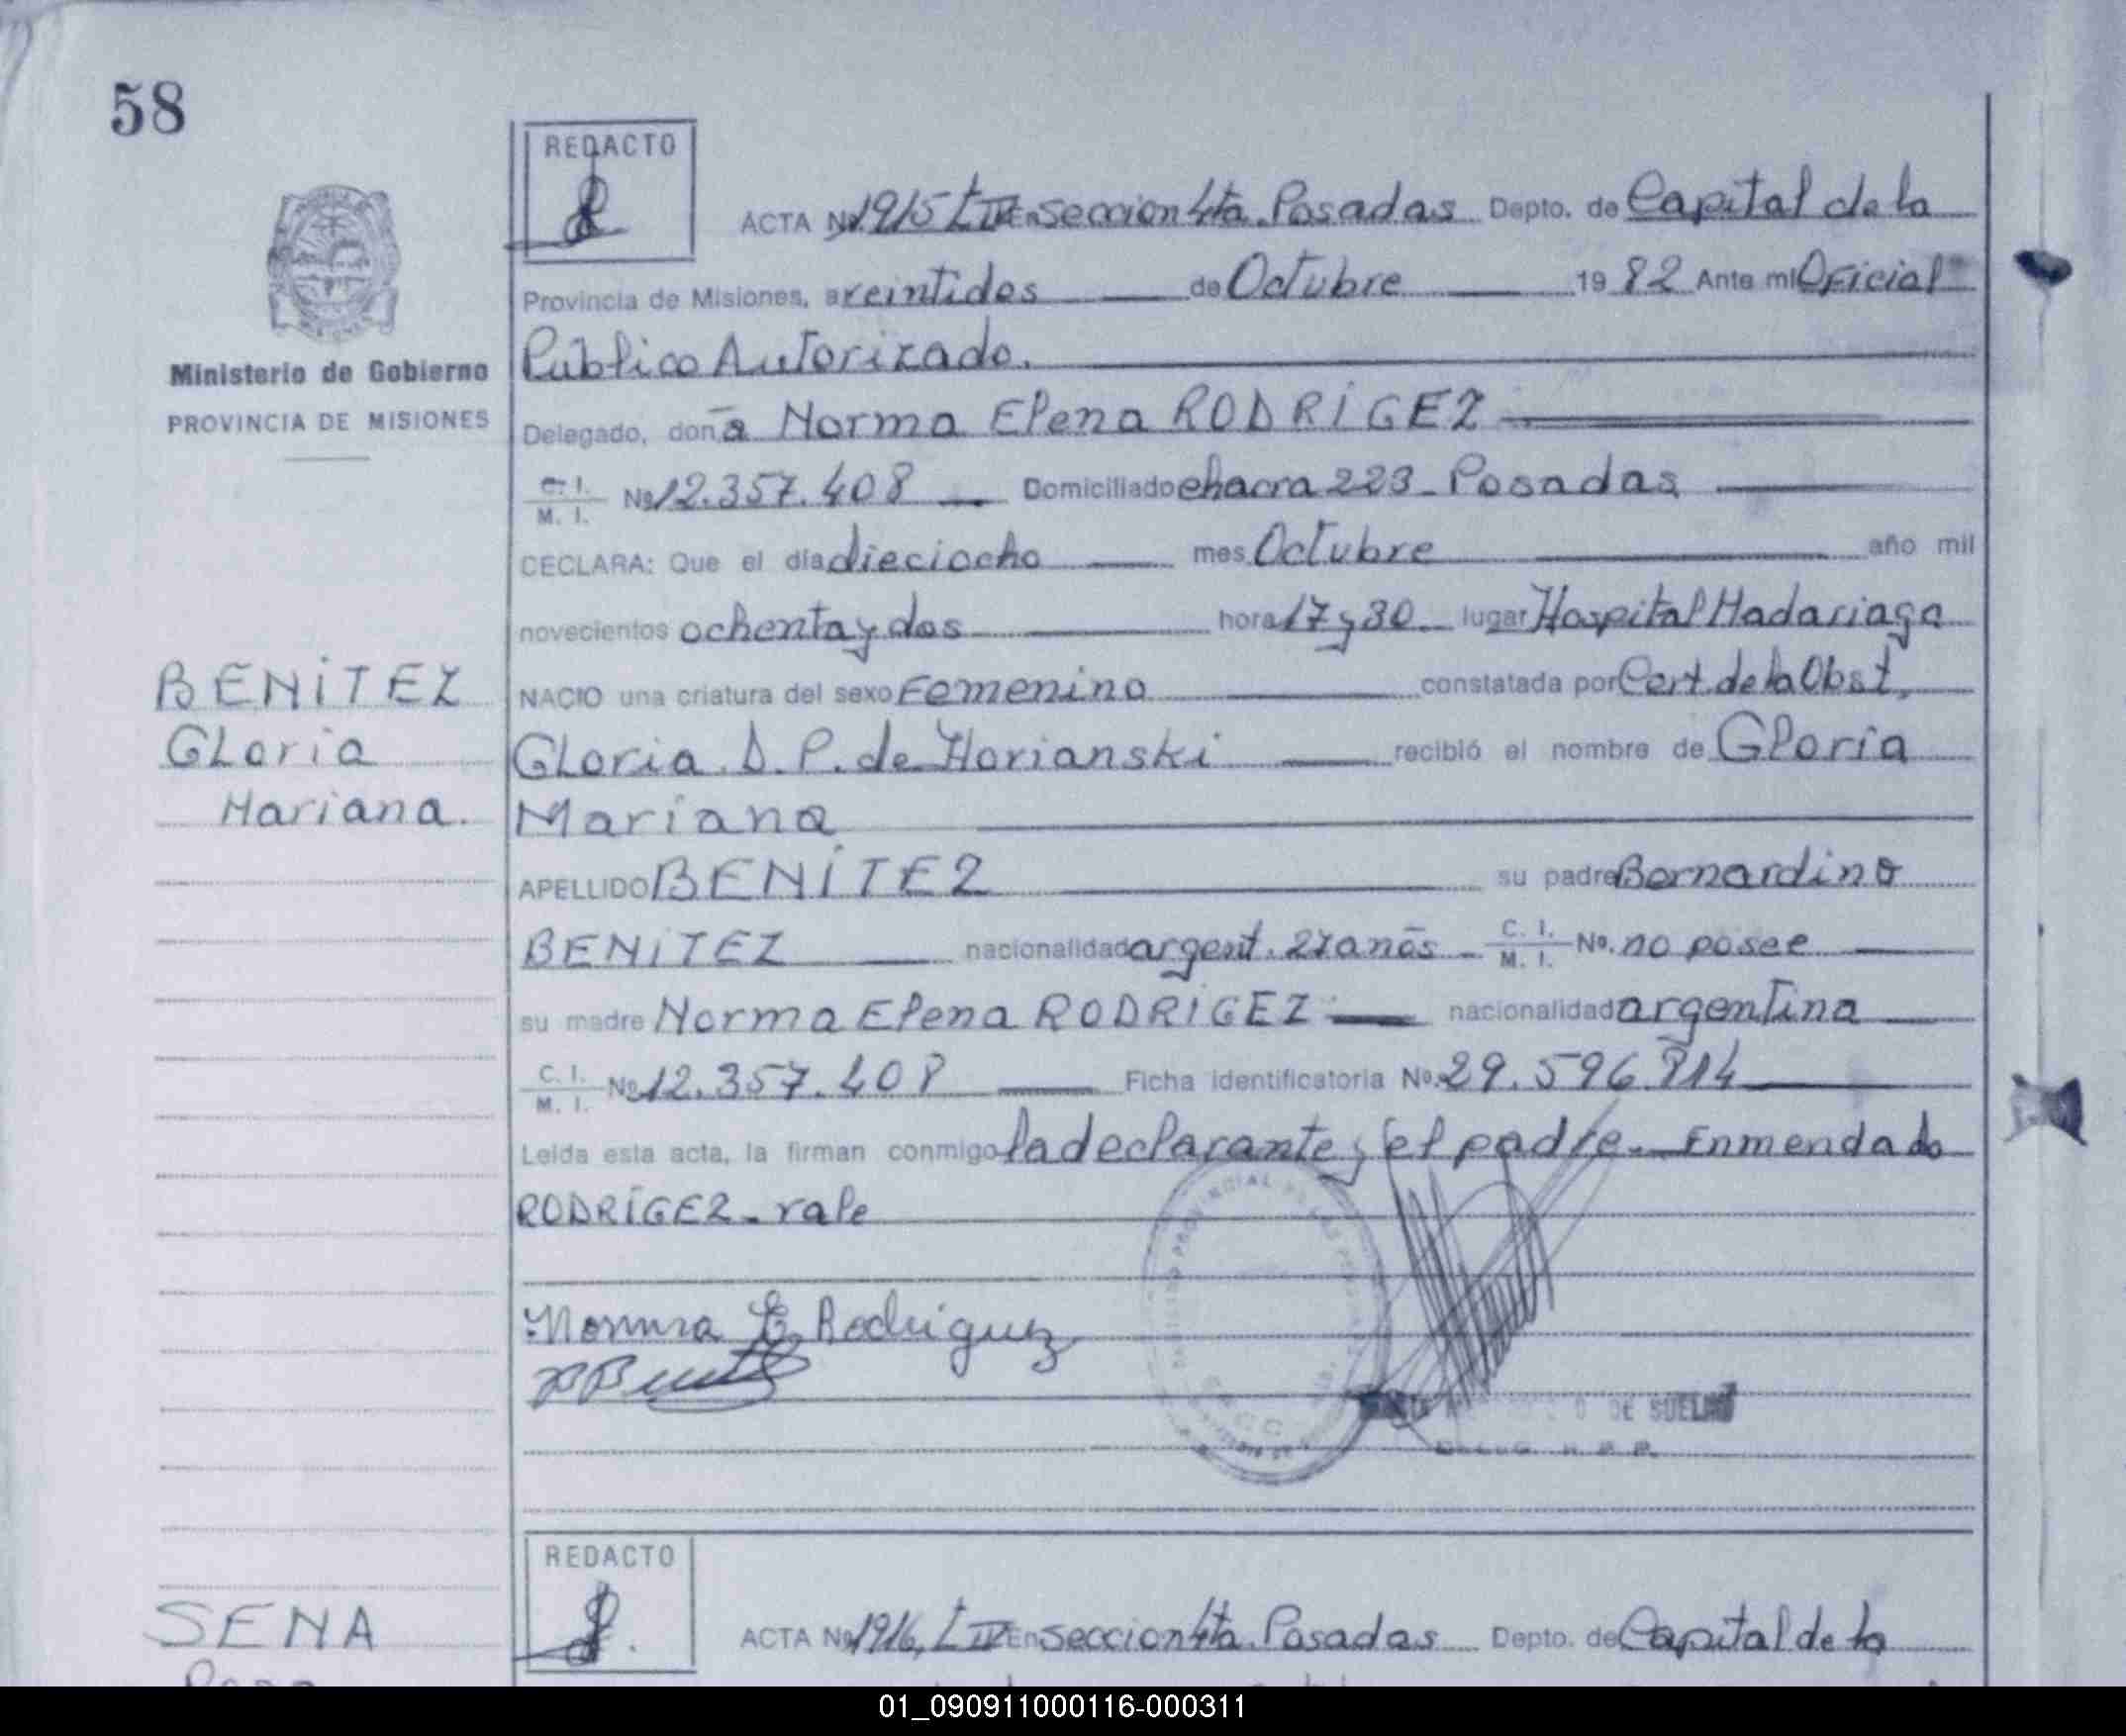 58
REDACTO
ACTA Nº 1915 T IV En Seccion 4ta. Posadas Depto. de Capital de la
Provincia de Misiones, a veintidos de Octubre 19 82 Ante mi Oficial
Ministerio de Gobierno
Publico Autorizado.
PROVINCIA DE MISIONES
Delegado, don a Norma Elena RODRIGEZ
C. I. M. I. Nº 12.357.408 Domiciliado chacra 223 - Posadas
DECLARA: Que el día dieciocho mes Octubre año mil
novecientos ochenta y dos hora 17 y 30 lugar Hospital Madariaga
BENITEZ
NACIO una criatura del sexo Femenino constatada por Cert. de la Obst.
GLoria
GLoria. D. P. de Horianski recibió el nombre de Gloria
Mariana.
Mariana
APELLIDO BENITEZ su padre Bernardino
BENITEZ nacionalidad argent. 27 años - C. I. M. I. Nº. no posee
su madre Norma Elena RODRIGEZ nacionalidad argentina
C. I. M. I. Nº 12.357.408 Ficha identificatoria Nº. 29.596.814
Leida esta acta, la firman conmigo la declarante y el padre. Enmendado
RODRIGEZ - vale
Norma E. Rodriguez
DE SUELDO
REDACTO
SENA
ACTA Nº 1916, T IV En Seccion 4ta. Posadas Depto. de Capital de la
01_090911000116-000311